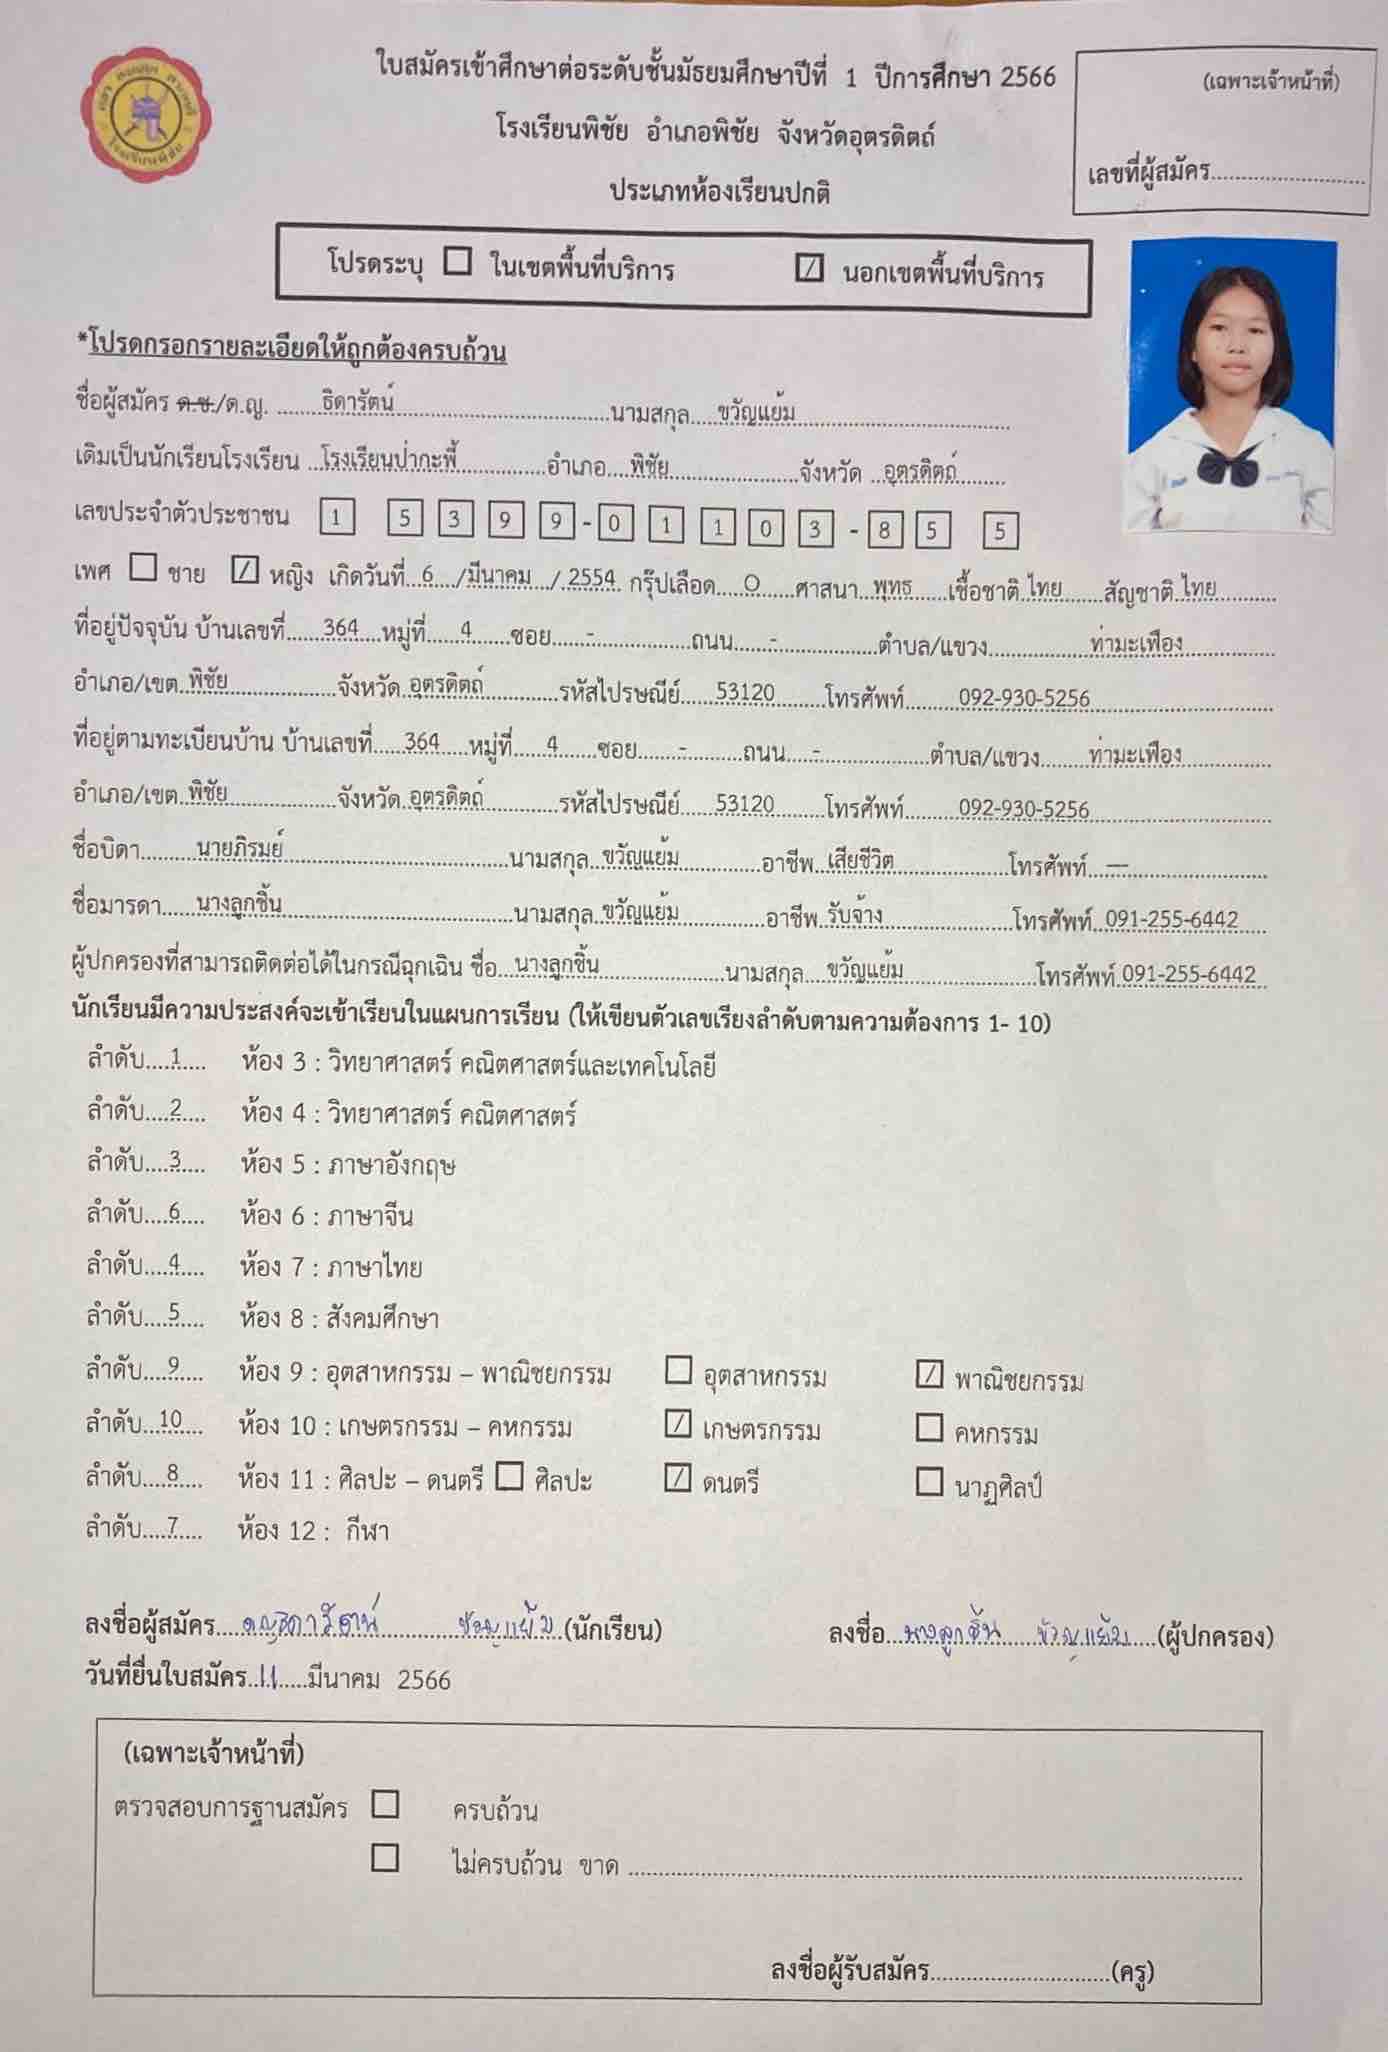 ใบสมัครเข้าศึกษาต่อระดับชั้นมัธยมศึกษาปีที่ 1 ปีการศึกษา 2566
(เฉพาะเจ้าหน้าที่)
โรงเรียนพิชัย อำเภอพิชัย จังหวัดอุตรดิตถ์
เลขที่ผู้สมัคร
ประเภทห้องเรียนปกติ
โปรดระบุ ☐ ในเขตพื้นที่บริการ ☑ นอกเขตพื้นที่บริการ
*โปรดกรอกรายละเอียดให้ถูกต้องครบถ้วน
ชื่อผู้สมัคร ด.ช./ด.ญ. ธิดารัตน์ นามสกุล ขวัญแย้ม
เดิมเป็นนักเรียนโรงเรียน โรงเรียนป่ากะพี้ อำเภอ พิชัย จังหวัด อุตรดิตถ์
เลขประจำตัวประชาชน 1 5 3 9 9 - 0 1 1 0 3 - 8 5 5
เพศ ☐ ชาย ☑ หญิง เกิดวันที่ 6 / มีนาคม / 2554 กรุ๊ปเลือด O ศาสนา พุทธ เชื้อชาติ ไทย สัญชาติ ไทย
ที่อยู่ปัจจุบัน บ้านเลขที่ 364 หมู่ที่ 4 ซอย - ถนน - ตำบล/แขวง ท่ามะเฟือง
อำเภอ/เขต พิชัย จังหวัด อุตรดิตถ์ รหัสไปรษณีย์ 53120 โทรศัพท์ 092-930-5256
ที่อยู่ตามทะเบียนบ้าน บ้านเลขที่ 364 หมู่ที่ 4 ซอย - ถนน - ตำบล/แขวง ท่ามะเฟือง
อำเภอ/เขต พิชัย จังหวัด อุตรดิตถ์ รหัสไปรษณีย์ 53120 โทรศัพท์ 092-930-5256
ชื่อบิดา นายภิรมย์ นามสกุล ขวัญแย้ม อาชีพ เสียชีวิต โทรศัพท์ —
ชื่อมารดา นางลูกชิ้น นามสกุล ขวัญแย้ม อาชีพ รับจ้าง โทรศัพท์ 091-255-6442
ผู้ปกครองที่สามารถติดต่อได้ในกรณีฉุกเฉิน ชื่อ นางลูกชิ้น นามสกุล ขวัญแย้ม โทรศัพท์ 091-255-6442
นักเรียนมีความประสงค์จะเข้าเรียนในแผนการเรียน (ให้เขียนตัวเลขเรียงลำดับตามความต้องการ 1- 10)
ลำดับ 1 ห้อง 3 : วิทยาศาสตร์ คณิตศาสตร์และเทคโนโลยี
ลำดับ 2 ห้อง 4 : วิทยาศาสตร์ คณิตศาสตร์
ลำดับ 3 ห้อง 5 : ภาษาอังกฤษ
ลำดับ 6 ห้อง 6 : ภาษาจีน
ลำดับ 4 ห้อง 7 : ภาษาไทย
ลำดับ 5 ห้อง 8 : สังคมศึกษา
ลำดับ 9 ห้อง 9 : อุตสาหกรรม – พาณิชยกรรม ☐ อุตสาหกรรม ☑ พาณิชยกรรม
ลำดับ 10 ห้อง 10 : เกษตรกรรม – คหกรรม ☑ เกษตรกรรม ☐ คหกรรม
ลำดับ 8 ห้อง 11 : ศิลปะ – ดนตรี ☐ ศิลปะ ☑ ดนตรี ☐ นาฏศิลป์
ลำดับ 7 ห้อง 12 : กีฬา
ลงชื่อผู้สมัคร ด.ญ.ธิดารัตน์ ขวัญแย้ม (นักเรียน) ลงชื่อ นางลูกชิ้น ขวัญแย้ม (ผู้ปกครอง)
วันที่ยื่นใบสมัคร 11 มีนาคม 2566
(เฉพาะเจ้าหน้าที่)
ตรวจสอบการฐานสมัคร ☐ ครบถ้วน
☐ ไม่ครบถ้วน ขาด
ลงชื่อผู้รับสมัคร (ครู)